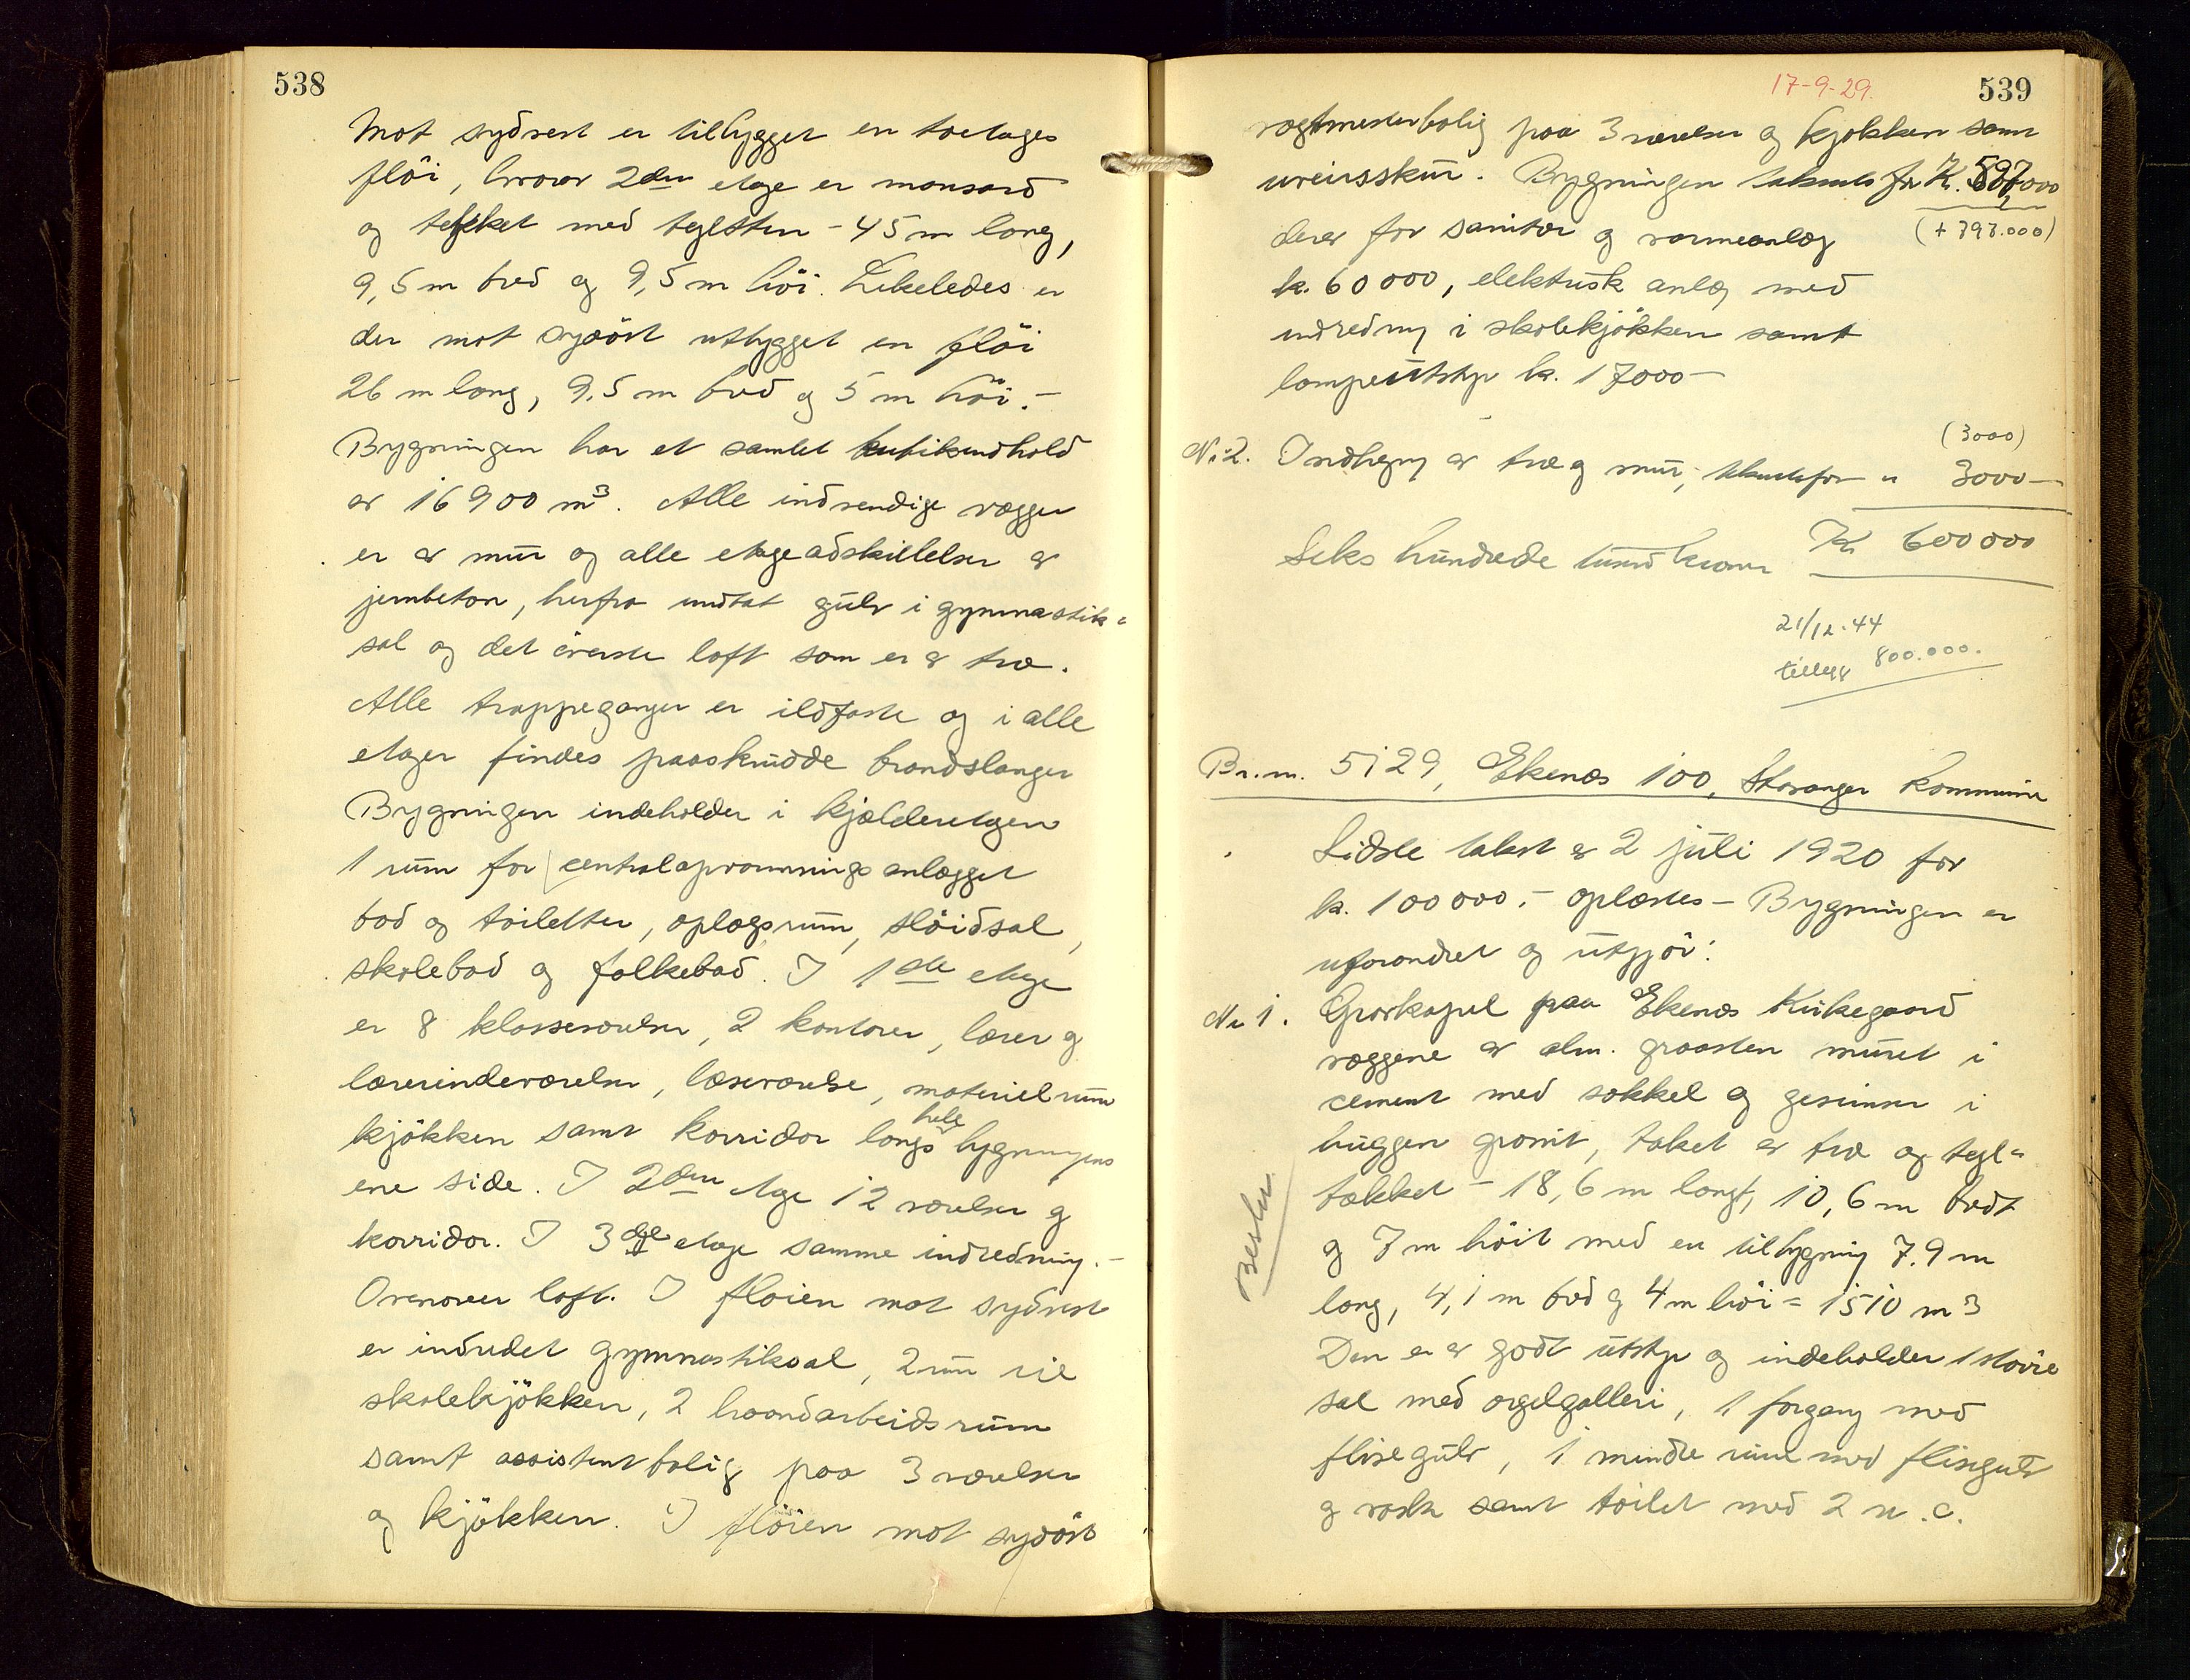 538
Mot sydvest er tilbygget en toetages
flöi, hvorav 2den etage er mansard
og tekket med teglsten - 45 m lang,
9,5 m bred og 9,5 m höi. Likeledes er
der mot sydöst utbygget en flöi
26 m lang, 9,5 m bred og 5 m höi.-
Bygningen har et samlet kubikindhold
av 16900 m3. Alle indvendige vægger
er av mur og alle etageadskillelser av
jernbeton, herfra undtat gulv i gymnastik-
sal og det överste loft som er av træ.
Alle trappeganger er ildfaste og i alle
etager findes paaskrudde brandslanger
Bygningen indeholder i kjælderetagen
1 rum for centralopvarmningsanlægget
bad og toiletter, oplagsrum, slöidsal,
skolebad og folkebad. I 1ste etage
er 8 klasseværelser, 2 kontorer, lærer og
lærerindeværelser, læseværelse, materielrum
kjökken samt korridor langs hele bygningens
ene side. I 2den etage 12 værelser og
korridor. I 3dje etage samme indredning.-
Ovenover loft. I flöien mot sydvest
er indredet gymnastiksal, 2 rum til
skolekjökken, 2 haandarbeidsrum
samt assistentbolig paa 3 værelser
og kjökken. I flöien mot sydöst
17-9-29. 539
vagtmesterbolig paa 3 værelser og kjökken samt
ureinsskur. Bygningen takseres for K. 597000
derav for sanitær og varmeanlæg (+ 797.000)
k. 60000, elektrisk anlæg med
indredning i skolekjökken samt
lampeutstyr k. 17000-
(3000)
No 2. Indhegning av træ og mur, takseres for " 3000-
Seks hundrede tusind kroner K 600000
21/12-44
tillegg 800.000.
Br.nr. 5129, Ekenæs 100, Stavanger kommune
Sidste takst av 2 juli 1920 for
k. 100000.- oplæstes - Bygningen er
uforandret og utgjör:
No 1. Gravkapel paa Ekenæs Kirkegaard
væggene av alm. graasten muret i
cement med sokkel og gesimser i
huggen granit, taket av træ og tegl-
tækket - 18,6 m langt, 10,6 m bredt
og 7 m höit med en tilbygning 7.9 m
lang, 4,1 m bred og 4 m höi = 1510 m3
Den er av godt utstyr og indeholder 1 större
sal med orgelgalleri, 1 forgang med
flisegulv, 1 mindre rum med flisegulv
og vask samt toilet med 2 w.c.